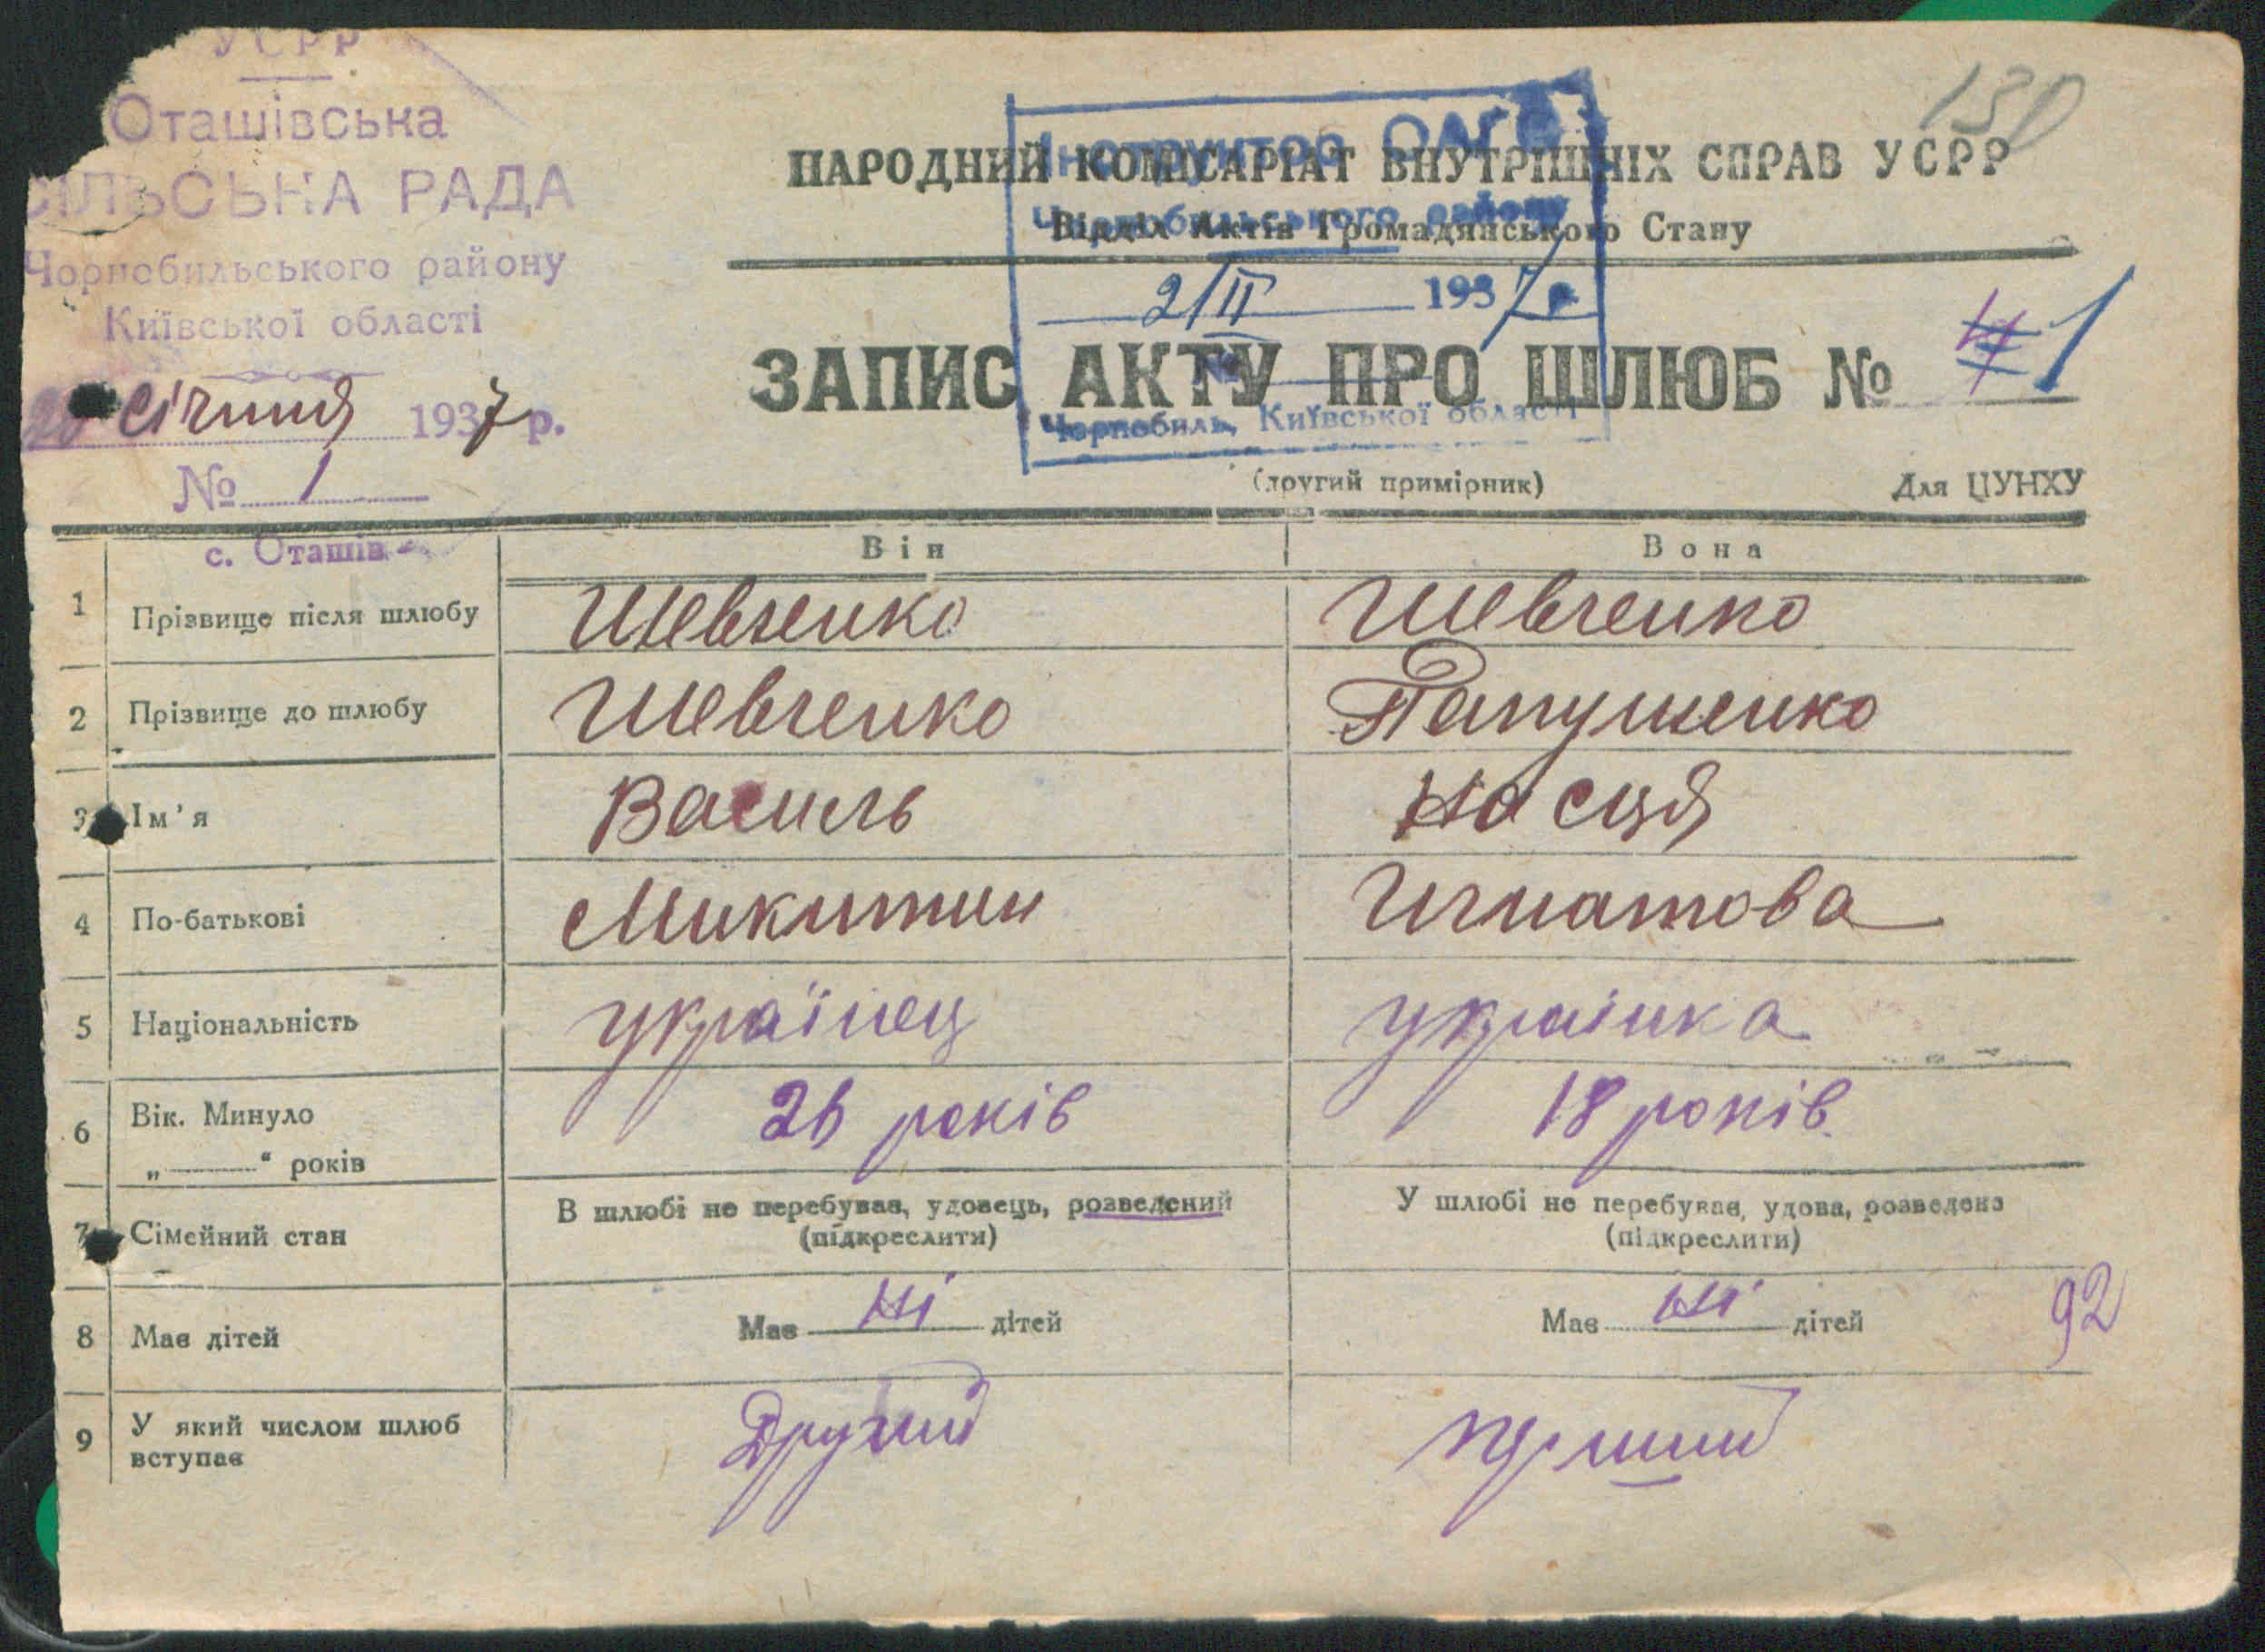 УСРР
Оташівська
СІЛЬСЬКА РАДА
Чорнобильського району
Київської області
січня 1937 р.
№ 1
с. Оташів
130
НАРОДНИЙ КОМІСАРІАТ ВНУТРІШНІХ СПРАВ УСРР
Відділ Актів Громадянського Стану
Інструктор ОАГС
Чорнобильського району
2/II 1937 р.
Чорнобиль, Київської області
ЗАПИС АКТУ ПРО ШЛЮБ № 1
(другий примірник) Для ЦУНХУ
Він Вона
1 Прізвище після шлюбу Шевченко Шевченко
2 Прізвище до шлюбу Шевченко Папушенко
3 Ім'я Василь Насця
4 По-батькові Микитин Игнатова
5 Національність українец українка
6 Вік. Минуло 26 років 18 років
„ “ років
7 Сімейний стан В шлюбі не перебував, удовець, розведений У шлюбі не перебував, удова, розведена
(підкреслити) (підкреслити)
8 Має дітей Має Ні дітей Має Ні дітей
92
9 У який числом шлюб Другий перший
вступає